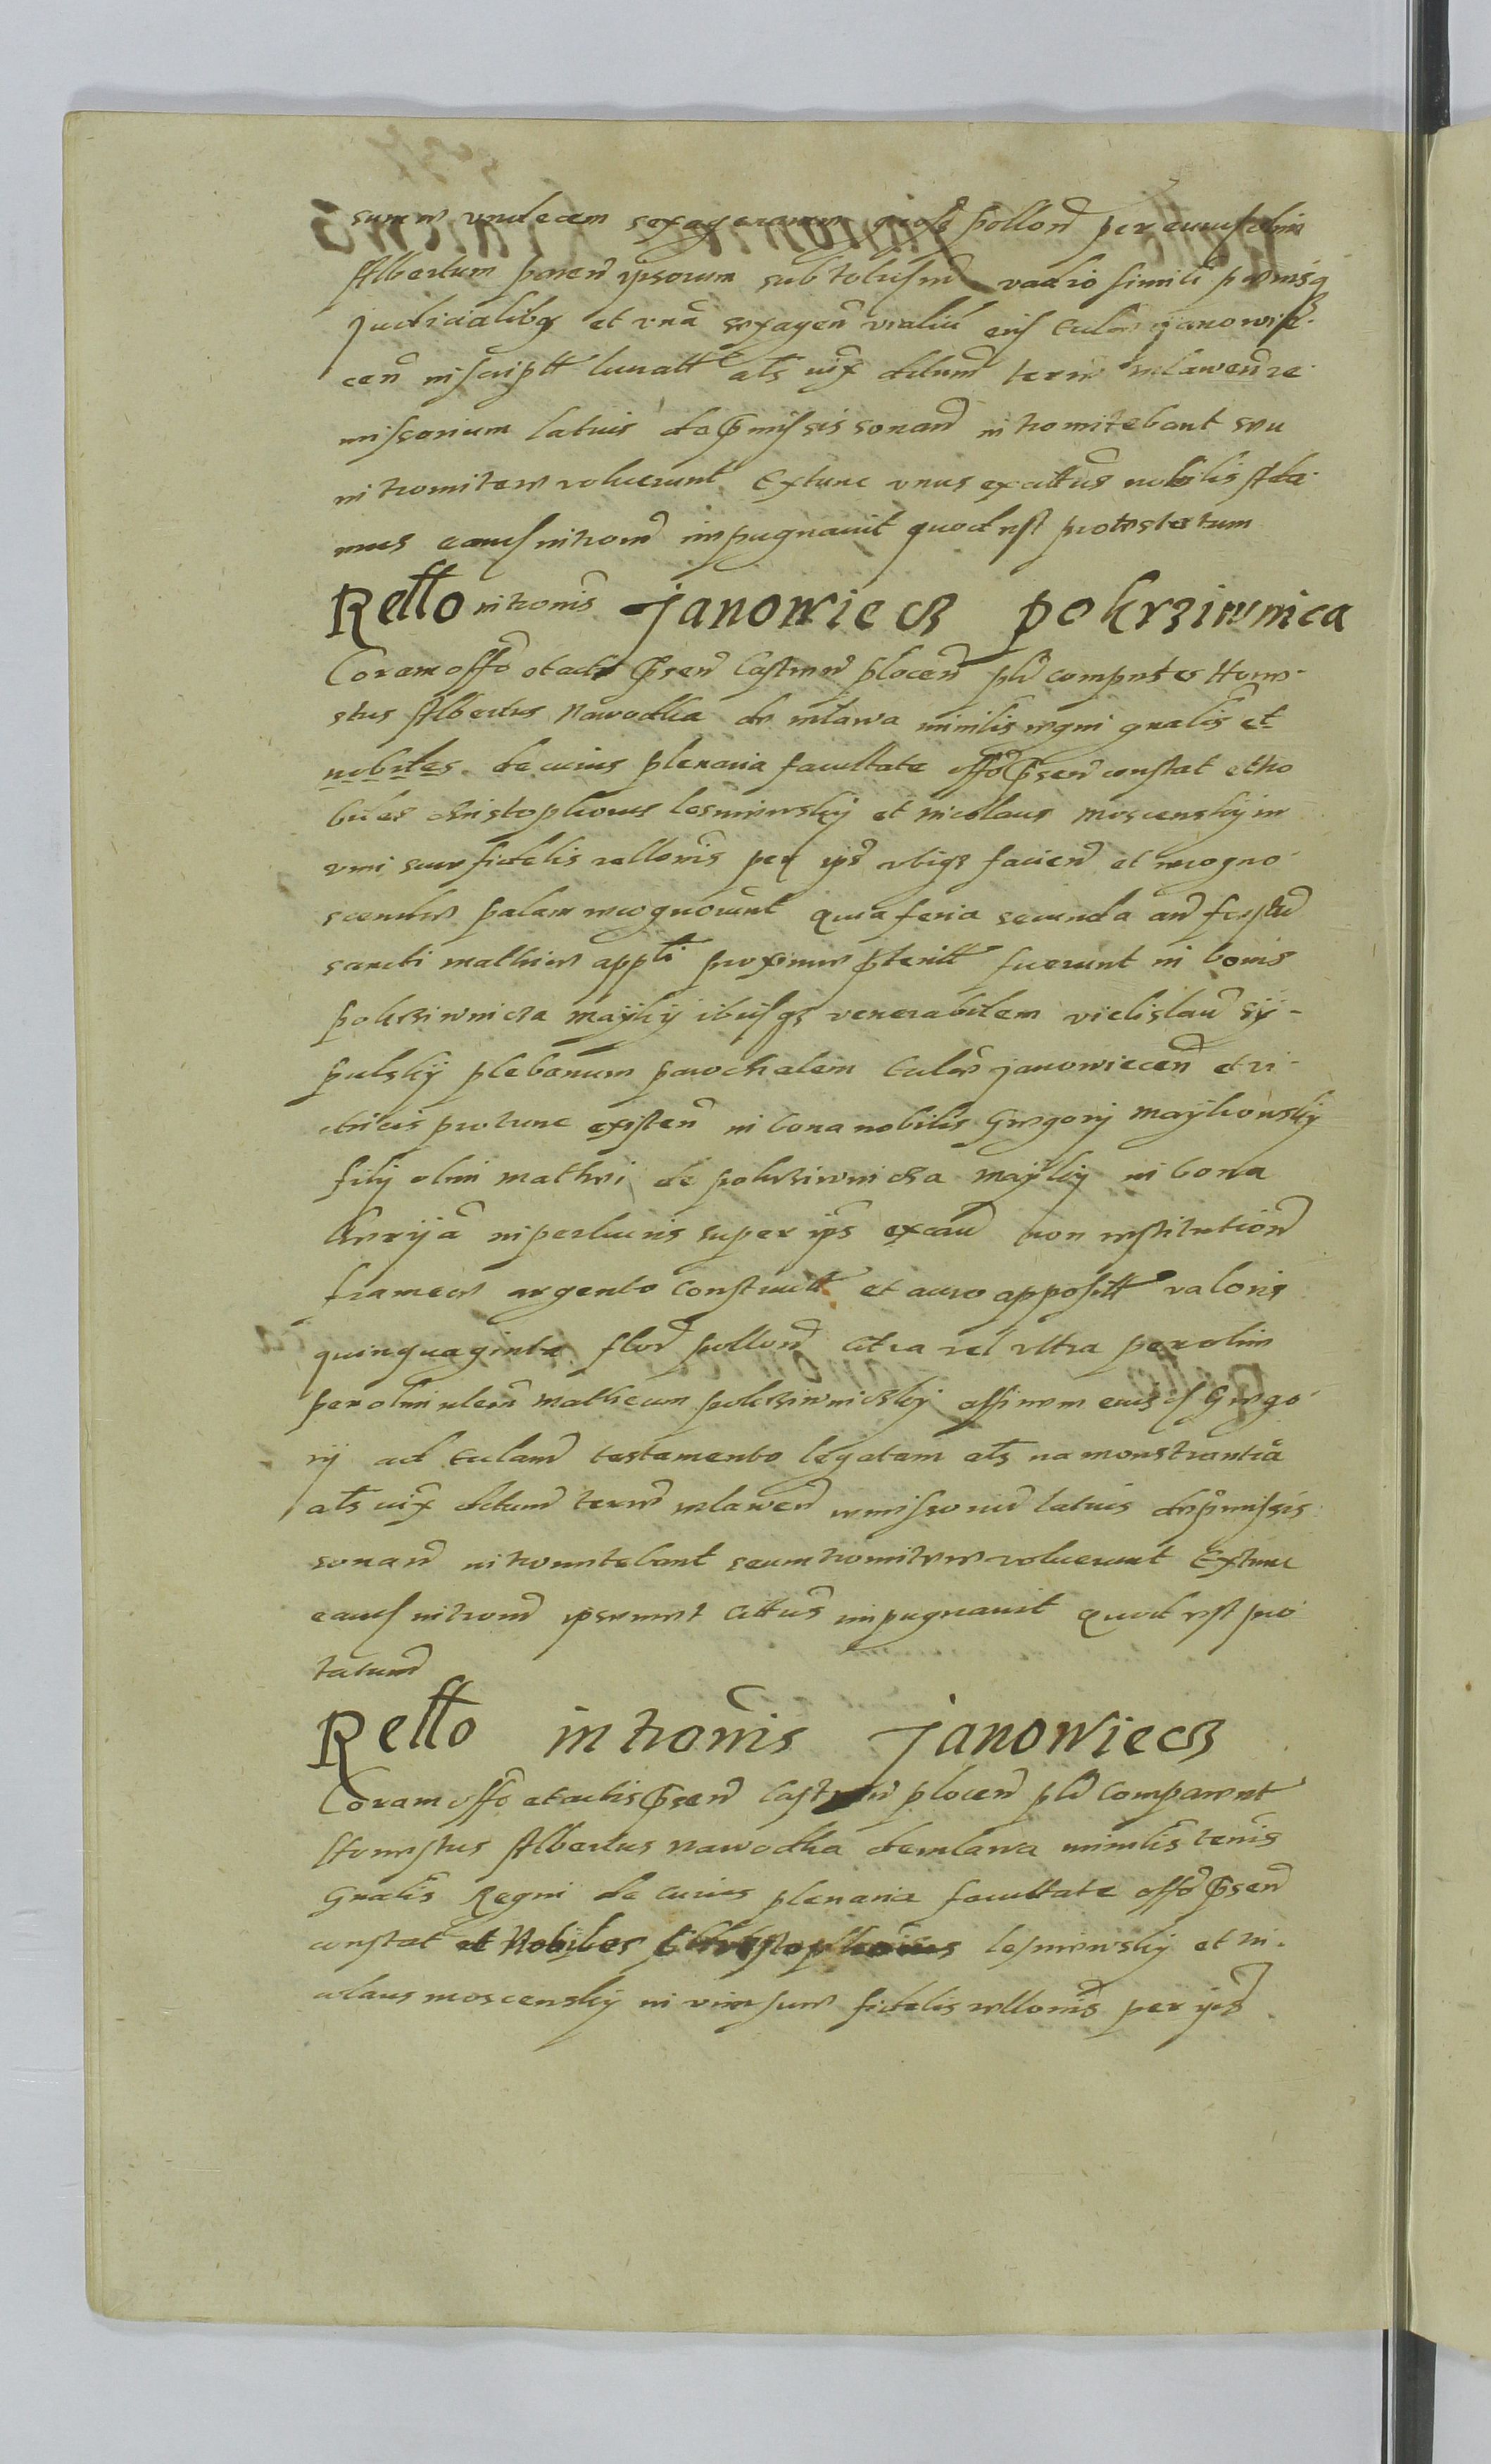 summ undecem sexagenarum gross pollon per eunusolim
Albertum paren ipsorum sub tolusm vadio simili penisq
Judicialibq et una sexagen vraliu eius Eccle Janowie-
cen inscriptt lucratt als iux dctum term mlawen re-
missorium latius de pmissis sonan intromitebant seu
intromitere voluerunt Extunc unus ex attus nobilis Ada-
mus eamus introm impugnauit quod est protestatum
Rello intronis Janowiecz pokrziwnica
Coram offo et actis psen Castren plocen plr comprntes Hone-
stus Albertus Nawodka de mlawa minilis regni gnalis et
nobiles de cuius plenaria facultate offo psen constat et No
biles christophorus lesniewsky et nicolaus moscensky in
vim sue fidelis rellonis per ips ubiqz facien et recogno-
scendae palam recognouerunt quia feria secunda an festu
sancti mathiae appli proxime pteritt fuerunt in bonis
pokrziwnicza mayky ibiusqz venerabilem vielislau Sy-
pulsky plebanum parochalem Eccle janowiecen et vi-
tricis protunc existen in bona nobilis Gregorij maykowsky
filij olim mathei de pokrziwnicza mayky in bona
hrrija in perlucris super ips ex cau non restitution
frameae argento construct et auro apposit valoris
quinquaginta flor pollon citra vel ultra per olim
per olim idem matheum pokrziwniczky assinum eius Grego-
rij ad Ecclam testamento legatam als na monstrantia
als iux dctum term mlawen remissoriu latius de pmissis
sonan intromitebant seu intromitere voluerunt Extunc
eamus introm ipsemet attus impugnauit quod est pro
tatum
Rello intronis Janowiecz
Coram offo et actis psen Castren plocen plr comparent
Honestus Albertus nawodka de mlawa minilis terris
Gnalis Regni de cuius plenaria facultate offo psen
constat et Nobiles Christophorus lesniewsky et Ni-
colaus moscensky in vim sue fidelis rellonis per ips